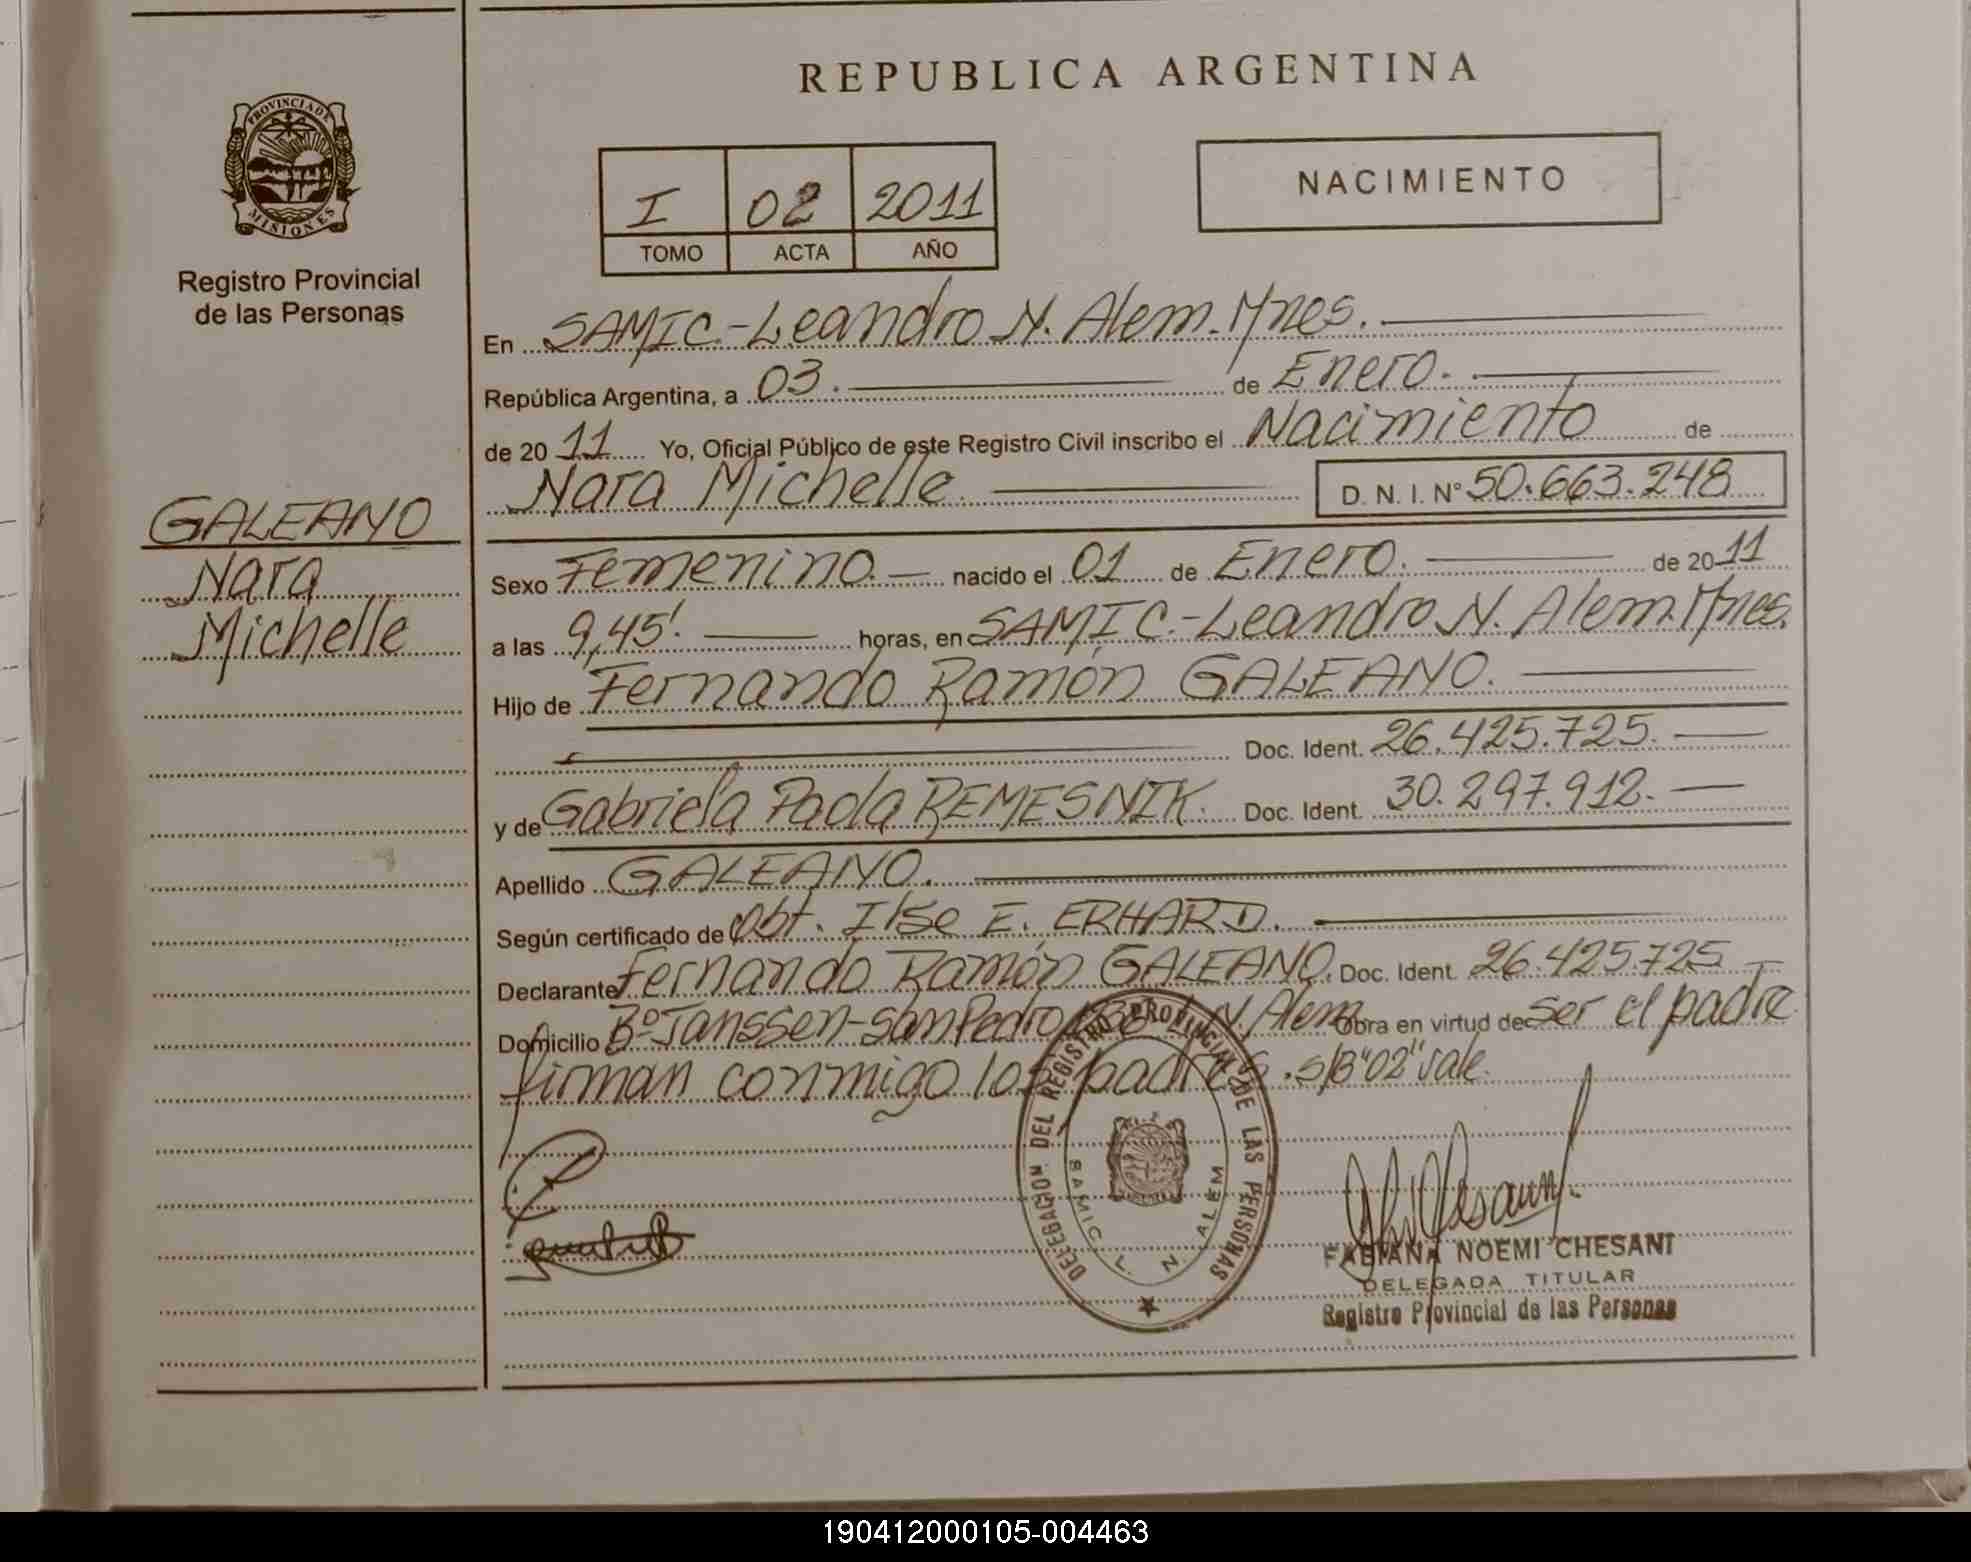 REPUBLICA ARGENTINA
PROVINCIA DE
MISIONES
Registro Provincial
de las Personas
I 02 2011
TOMO ACTA AÑO
NACIMIENTO
En SAMIC.-Leandro N. Alem.Mnes.
República Argentina, a 03. de Enero.
de 20 11 Yo, Oficial Público de este Registro Civil inscribo el Nacimiento de
Nara Michelle. D. N. I. N° 50.663.248
GALEANO
Nara
Michelle
Sexo Femenino.- nacido el 01 de Enero. de 20 11
a las 9,45'. horas, en SAMIC.-Leandro N. Alem.Mnes.
Hijo de Fernando Ramón GALEANO.
Doc. Ident. 26.425.725.
y de Gabriela Paola REMESNIK. Doc. Ident. 30.297.912.
Apellido GALEANO.
Según certificado de Obt. Ilse E. ERHARD.
Declarante Fernando Ramón GALEANO. Doc. Ident. 26.425.725
Domicilio B° Janssen-San Pedro N. Alem Obra en virtud de ser el padre
firman conmigo los padres. s/B "02" vale.
DELEGACION DEL REGISTRO PROVINCIAL DE LAS PERSONAS
SAMIC L. N. ALEM
FABIANA NOEMI CHESANI
DELEGADA TITULAR
Registro Provincial de las Personas
190412000105-004463